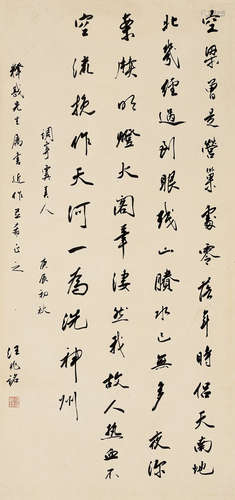 空梁曾是營巢處零落年時侶天南地
北幾經過到眼殘山賸水已無多夜深
案牘明燈火閣筆淒然我故人熱血不
空流挽作天河一為洗神州
調寄虞美人 庚辰初秋
釋戡先生屬書近作并希正之
汪兆銘